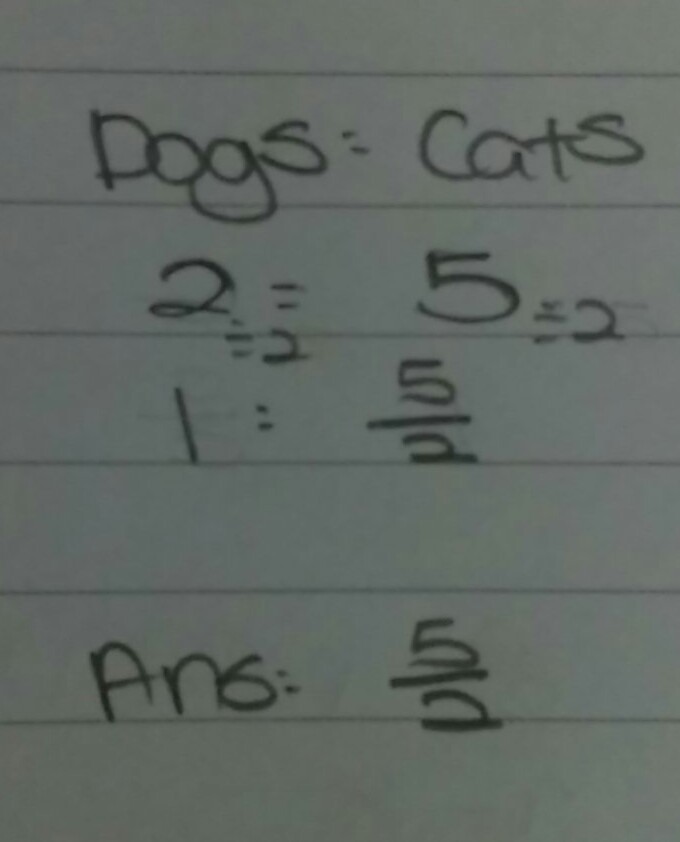 Dogs: Cats
2 : 5
÷2 ÷2
1 : 5/2
Ans: 5/2